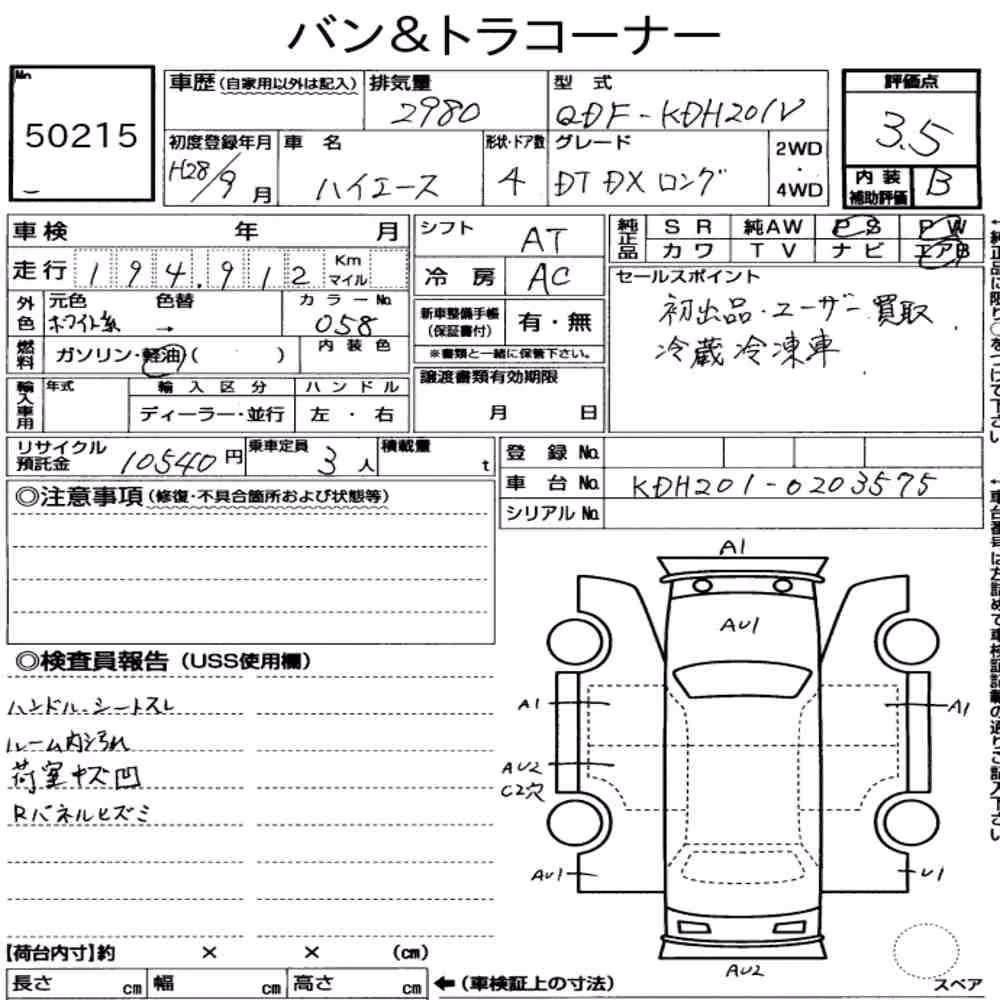 バン&トラコーナー
No.
50215
車歴(自家用以外は記入)
排気量
2980
型 式
QDF-KDH201V
評価点
3.5
初度登録年月
H28/9月
車 名
ハイエース
形状・ドア数
4
グレード
DT DX ロング
2WD
・
4WD
内装
補助評価
B
車検 年 月
走行 194,912 Km マイル
シフト
AT
冷 房
AC
純正品
SR 純AW PS PW
カワ TV ナビ エアB
外色
元色
ホワイト系
色替
→
カラーNo.
058
新車整備手帳
(保証書付)
有・無
※書類と一緒に保管下さい。
セールスポイント
初出品・ユーザー買取
冷蔵冷凍車
燃料
ガソリン・軽油( )
内装色
輸入車用
年式
輸入区分
ディーラー・並行
ハンドル
左 ・ 右
譲渡書類有効期限
月 日
リサイクル
預託金
10540円
乗車定員
3人
積載量
t
登 録 No.
車 台 No.
KDH201-0203575
シリアル No.
◎注意事項(修復・不具合箇所および状態等)
◎検査員報告(USS使用欄)
ハンドル、シートスレ
ルーム内汚れ
荷室キズ凹
Rパネルヒズミ
A1
AU1
A1
A1
AU2
C2穴
AU1
U1
AU2
スペア
【荷台内寸】約 × × (cm)
長さ cm 幅 cm 高さ cm
←(車検証上の寸法)
←純正品に限り○をつけて下さい
←車台番号は左詰めで車検証記載の通りご記入下さい